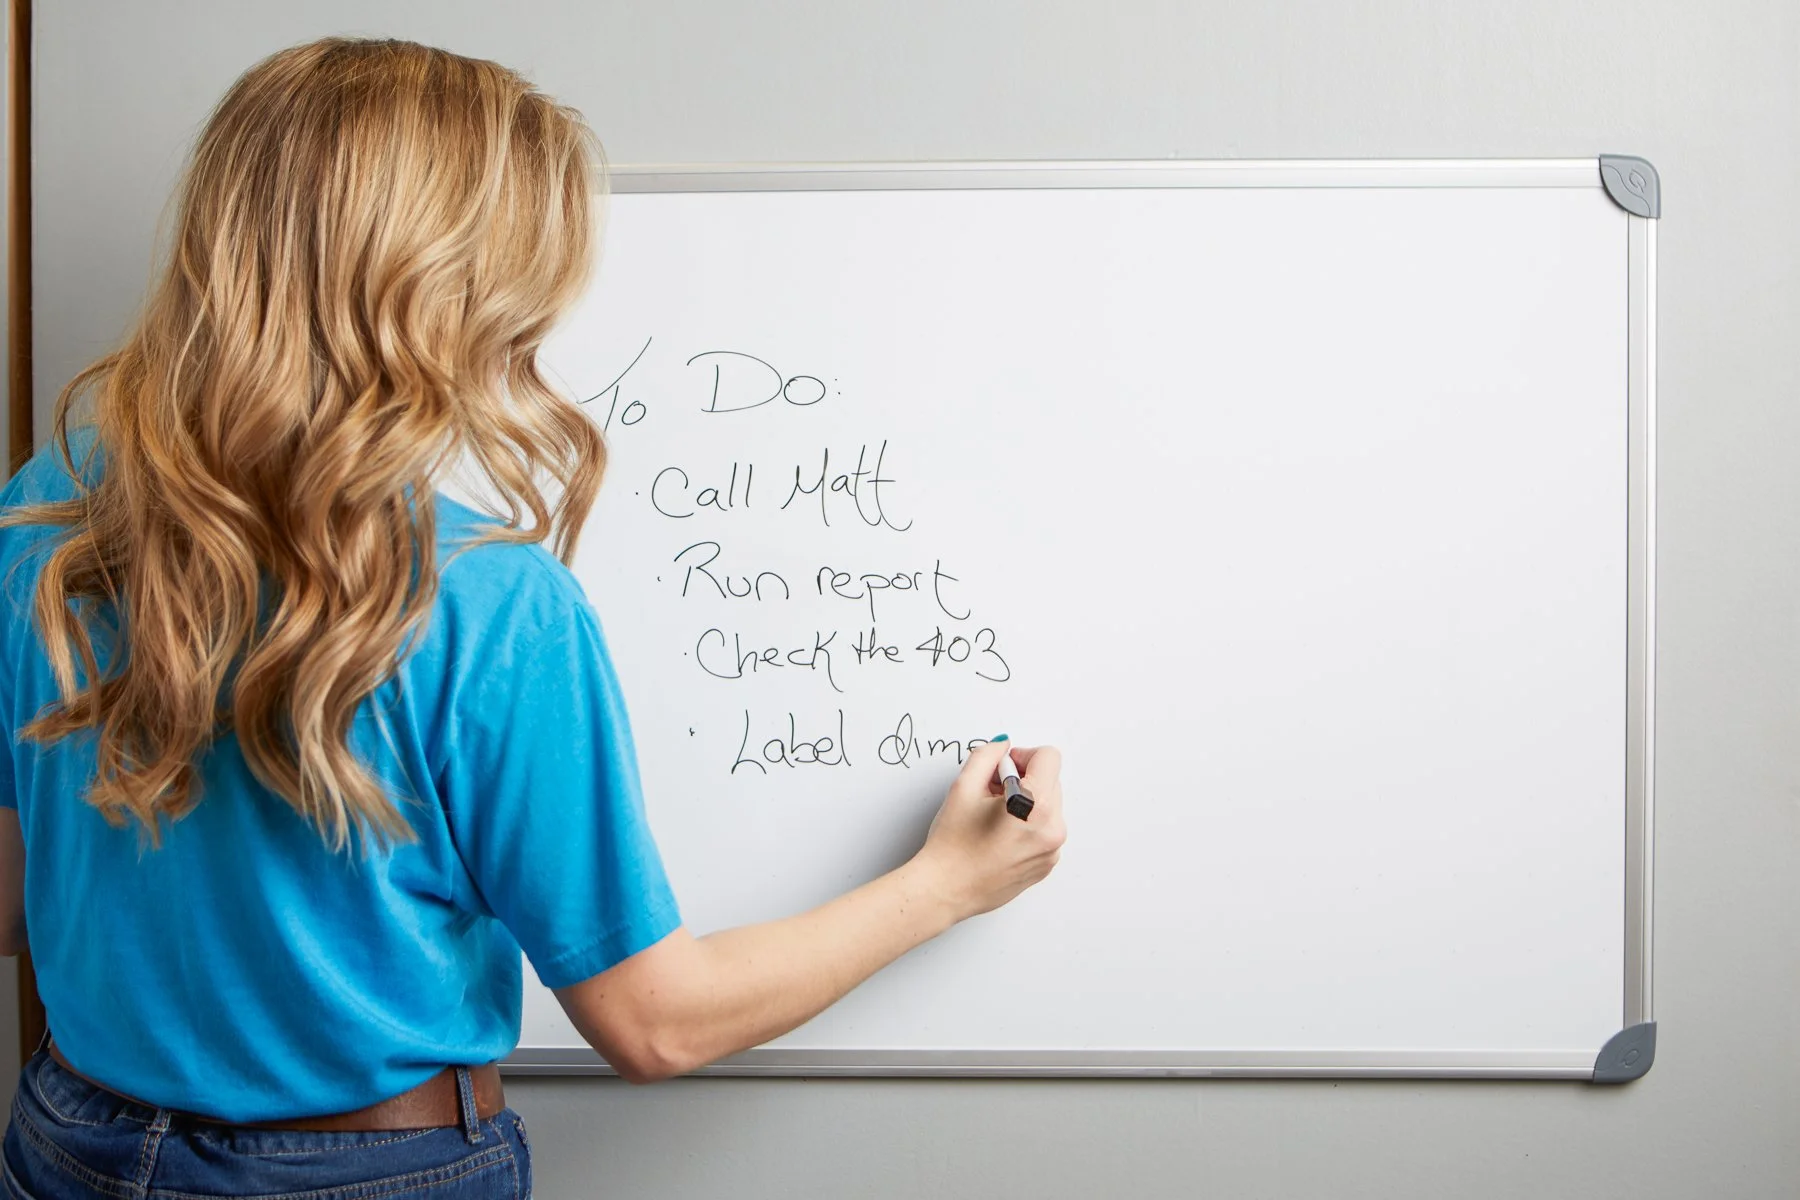 To Do:
· Call Matt
· Run report
· Check the 403
· Label